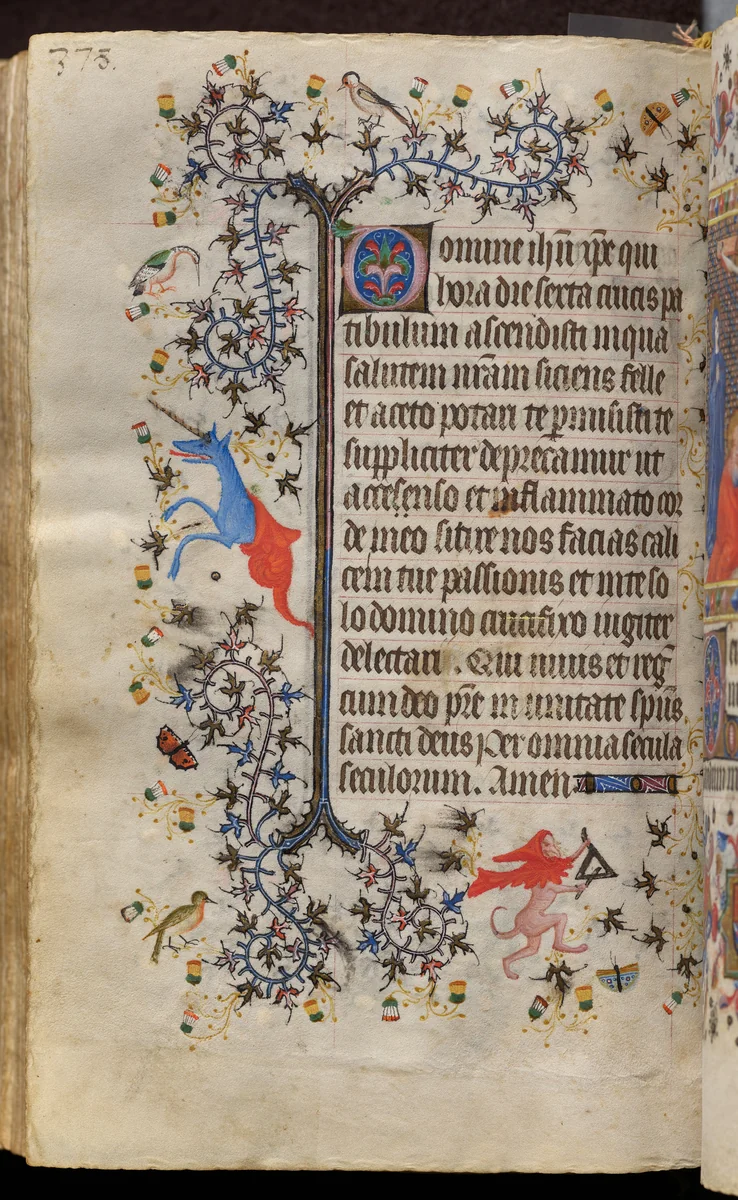 375.
Domine ihu xpe qui
hora die sexta crucis pa
tibulum ascendisti in qua
salutem nram siciens felle
et aceto potari te pmisisti te
suppliciter deprecamur ut
accesenso et inflammato cor
de meo sitire nos facias cali
cem tue passionis et in te so
lo domino crucifixo iugiter
delectari. Qui uiuis et reg
cum deo pre in unitate spus
sancti deus Per omnia secula
seculorum. Amen